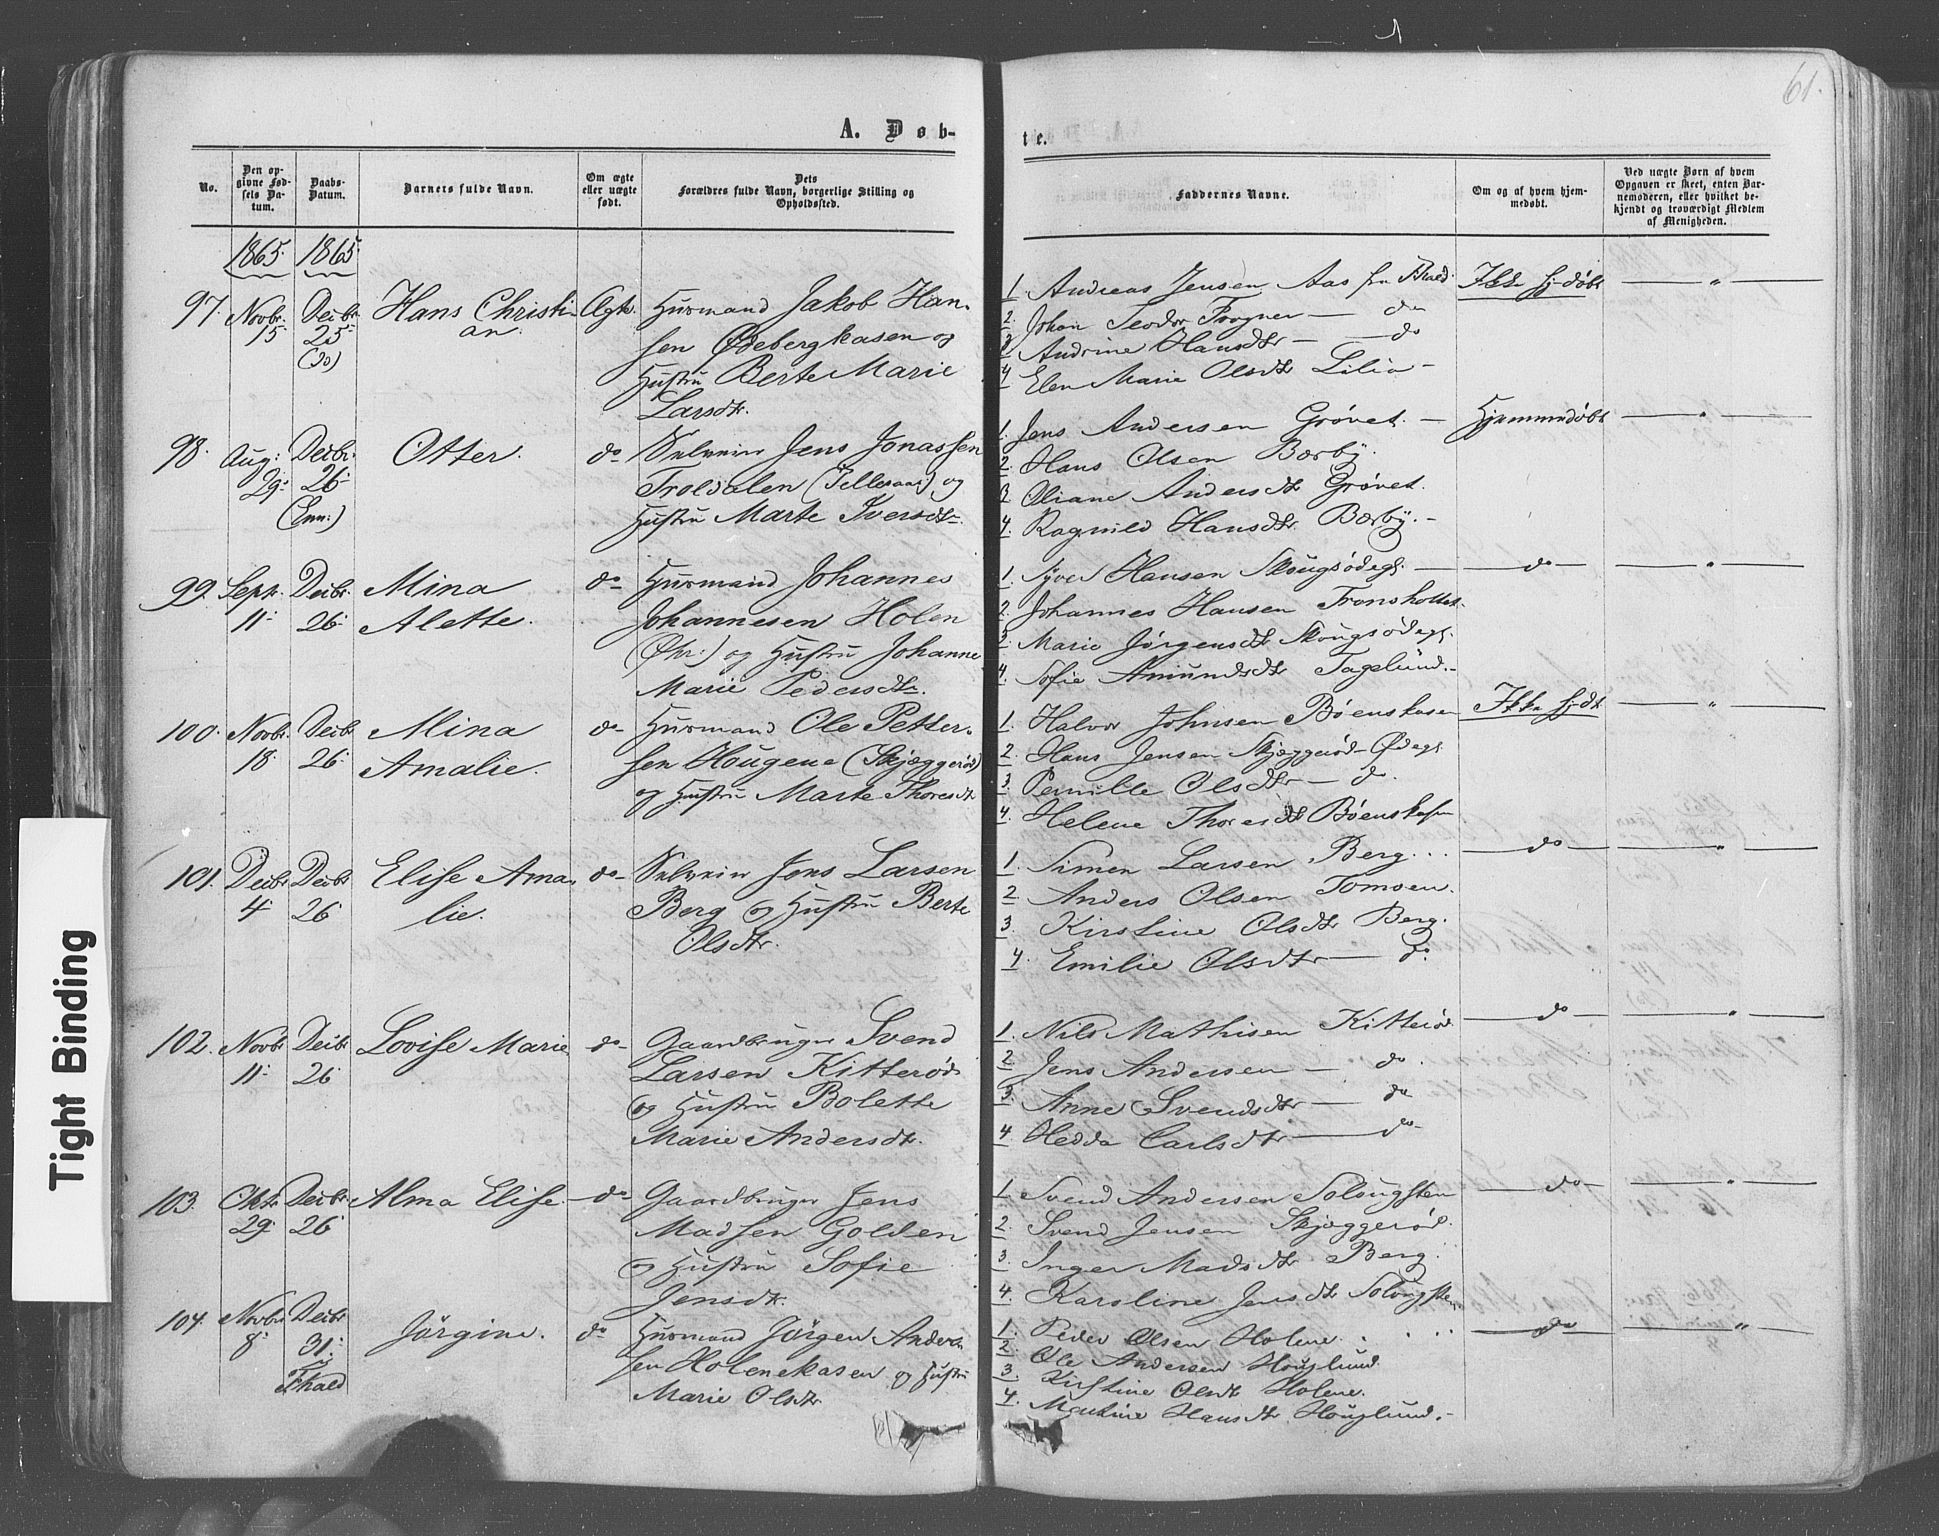 1
61.
A. Døb-
te.
No.
Den opgivne Fødsels Datum.
Daabs-Datum.
Barnets fulde Navn.
Om ægte eller uægte født.
Dets Forældres fulde Navn, borgerlige Stilling og Opholdssted.
Faddernes Navne.
Om og af hvem hjemmedøbt.
Ved uægte Børn af hvem Opgaven er skeet, enten Barnemoderen, eller hvilket bekjendt og troværdigt Medlem af Menigheden.
1865. 1865.
97. Novbr. 15 Decbr. 25
Hans Christian. Ægte.
Husmand Jakob Hansen
Ødebergkasen og
Hustru Berte Marie
Larsdtr.
1. Andreas Jensen Aas fra Thrald.
2. Johan Teodor Frogner — do
3. Andrine Hansdtr — do
4. Elen Marie Olsdtr Lilia —
Ikke hj-døbt — " —
98. Aug: 29 Decbr. 26
Otter. do
Selveier Jens Jonassen
Troldalen (Jelleraas) og
Hustru Marte Iversdtr.
1. Jens Andersen Grøvet. —
2. Hans Olsen Bærby.
3. Oliane Andersdtr Grøvet.
4. Ragnild Hansdtr Bærby. —
Hjemmedøbt — " —
99. Septr. 11 Decbr. 26
Mina
Alette. do
Husmand Johannes
Johannesen Holen
og Hustru Johanne
Marie Pedersdtr.
1. Syver Hansen Skougsødeg. —
2. Johannes Hansen Fronsholtet.
3. Marie Jørgensdtr Skougsødeg.
4. Sofie Amundsdtr Fagelund. —
do — " —
100. Novbr. 18. Decbr. 26
Mina
Amalie. do
Husmand Ole Petter-
sen Hougene (Skjæggerød)
og Hustru Marte Thoresdtr
1. Halvor Johnsen Bøenskasen
2. Hans Jensen Skjæggerød-Ødeg.
3. Pernille Olsdtr — do.
4. Helene Thoresdtr Bøenskasen
Ikke hj-dt — " —
101. Decbr 4. Decbr 26
Elise Ama-
lie. do
Selveier Jens Larsen
Berg og Hustru Berte
Olsdtr.
1. Simen Larsen Berg
2. Anders Olsen Tomsen.
3. Kirstine Olsdtr Berg.
4. Emilie Olsdtr — do.
do — " —
102. Novbr 11. Decbr 26
Lovise Marie. do
Gaardbruger Svend
Larsen Kitterød
og Hustru Bolette
Marie Andersdtr.
1. Nils Mathisen Kitterød
2. Jens Andersen — do.
3. Anne Svendsdtr — do
4. Hedda Carlsdtr — do
do — " —
103. Oktr. 29. Decbr. 26
Alma Elise. do
Gaardbruger Jens
Madsen Golden
og Hustru Sofie
Jensdtr.
1. Svend Andersen Solougsten
2. Svend Jensen Skjæggerød.
3. Inger Madsdtr Berg.
4. Karoline Jensdtr Solougsten
do — " —
104. Novbr. 8. Decbr 31. i Thrald
Jörgine. do
Husmand Jörgen Ander-
sen Holenekasen og Hustru
Marie Olsdtr.
1. Peder Olsen Holene.
2. Ole Andersen Houglund
3. Kirstine Olsdt Holene.
4. Martine Hansdtr Houglund. —
do — " —
Tight Binding